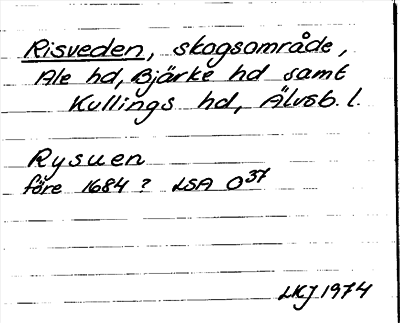 Risveden, skogsområde,
Ale hd, Bjärke hd samt
Kullings hd, Älvsb. l.
Rysuen
före 1684 ? LSA O37
LKJ 1974